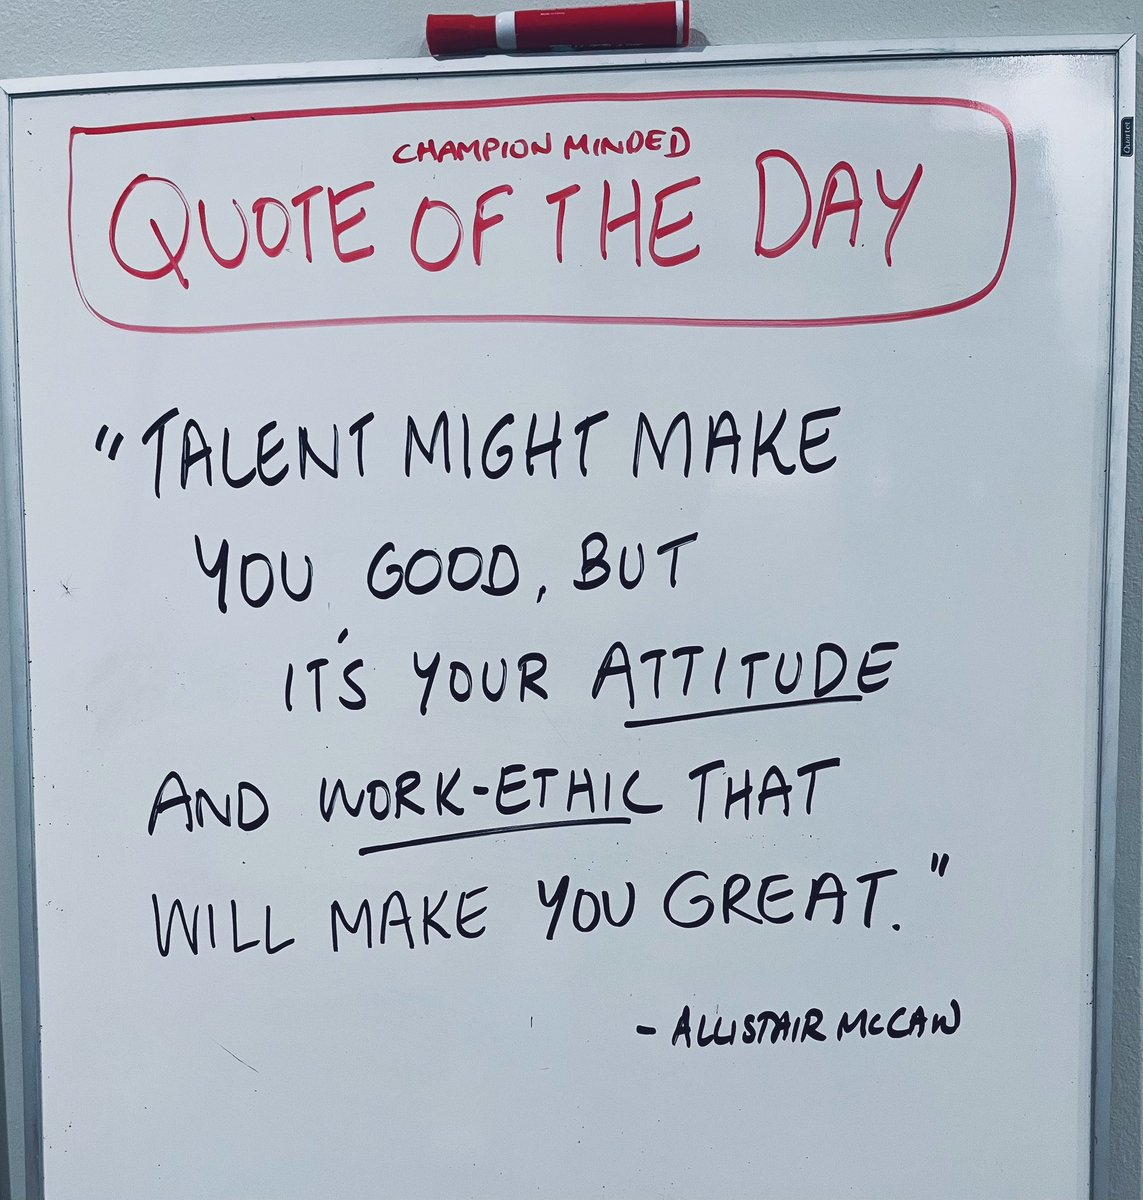 CHAMPION MINDED
QUOTE OF THE DAY
Quartet
"TALENT MIGHT MAKE
YOU GOOD, BUT
IT'S YOUR ATTITUDE
AND WORK-ETHIC THAT
WILL MAKE YOU GREAT."
- ALLISTAIR MCCAW